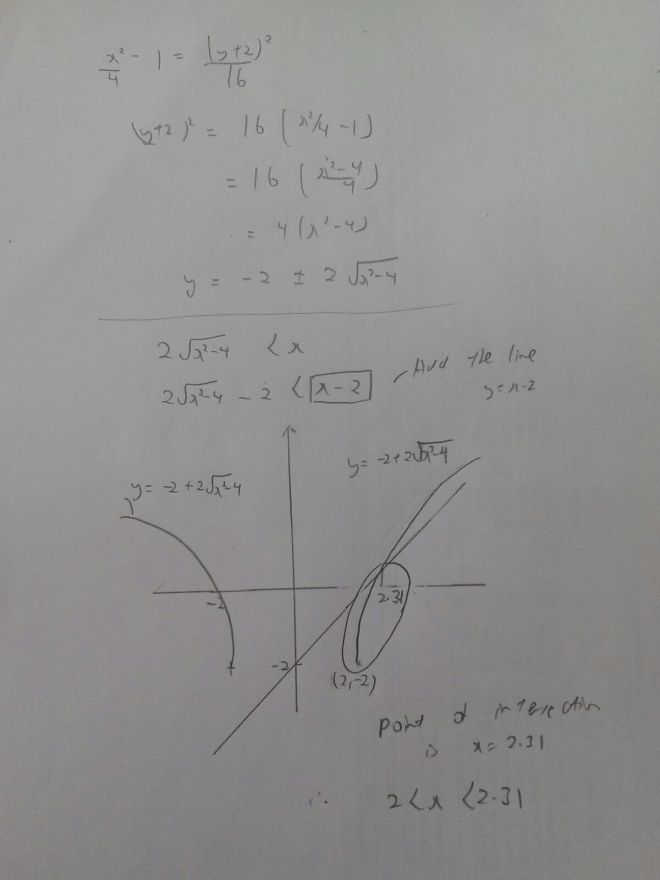 x²/4 - 1 = (y+2)²/16
(y+2)² = 16 (x²/4 - 1)
= 16 (x²-4/4)
= 4 (x²-4)
y = -2 ± 2 √x²-4
2 √x²-4 < x
2√x²-4 - 2 < x-2
Add the line
y = x-2
y = -2 + 2√x²-4
y = -2 + 2√x²-4
-2
2.31
-2
(2,-2)
point of intersection
is x = 2.31
∴ 2 < x < 2.31